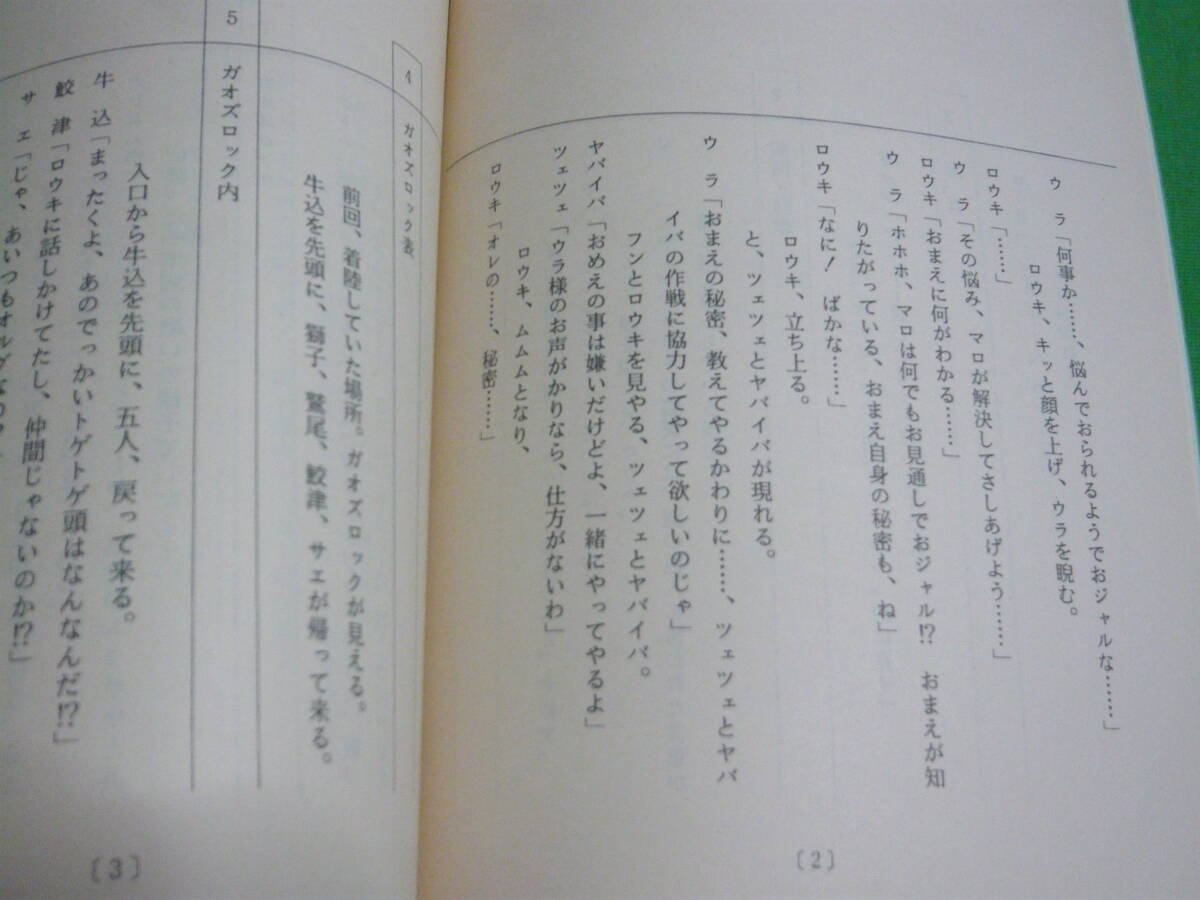 ウラ「何事か……、悩んでおられるようでおジャルな……」
ロウキ、キッと顔を上げ、ウラを睨む。
ロウキ「……」
ウラ「その悩み、マロが解決してさしあげよう……」
ロウキ「おまえに何がわかる……」
ウラ「ホホホ、マロは何でもお見通しでおジャル!? おまえが知
りたがっている、おまえ自身の秘密も、ね」
ロウキ「なに! ばかな……」
ロウキ、立ち上る。
と、ツェツェとヤバイバが現れる。
ウラ「おまえの秘密、教えてやるかわりに……、ツェツェとヤバ
イバの作戦に協力してやって欲しいのじゃ」
フンとロウキを見やる、ツェツェとヤバイバ。
ヤバイバ「おめえの事は嫌いだけどよ、一緒にやってやるよ」
ツェツェ「ウラ様のお声がかりなら、仕方がないわ」
ロウキ、ムムムとなり、
ロウキ「オレの……、秘密……」
〔2〕
4 ガオズロック表
前回、着陸していた場所。ガオズロックが見える。
牛込を先頭に、獅子、鷲尾、鮫津、サエが帰って来る。
5 ガオズロック内
入口から牛込を先頭に、五人、戻って来る。
牛込「まったくよ、あのでっかいトゲトゲ頭はなんなんだ!?」
鮫津「ロウキに話しかけてたし、仲間じゃないのか!?」
サエ「じゃ、あいつもオルグなの?
〔3〕